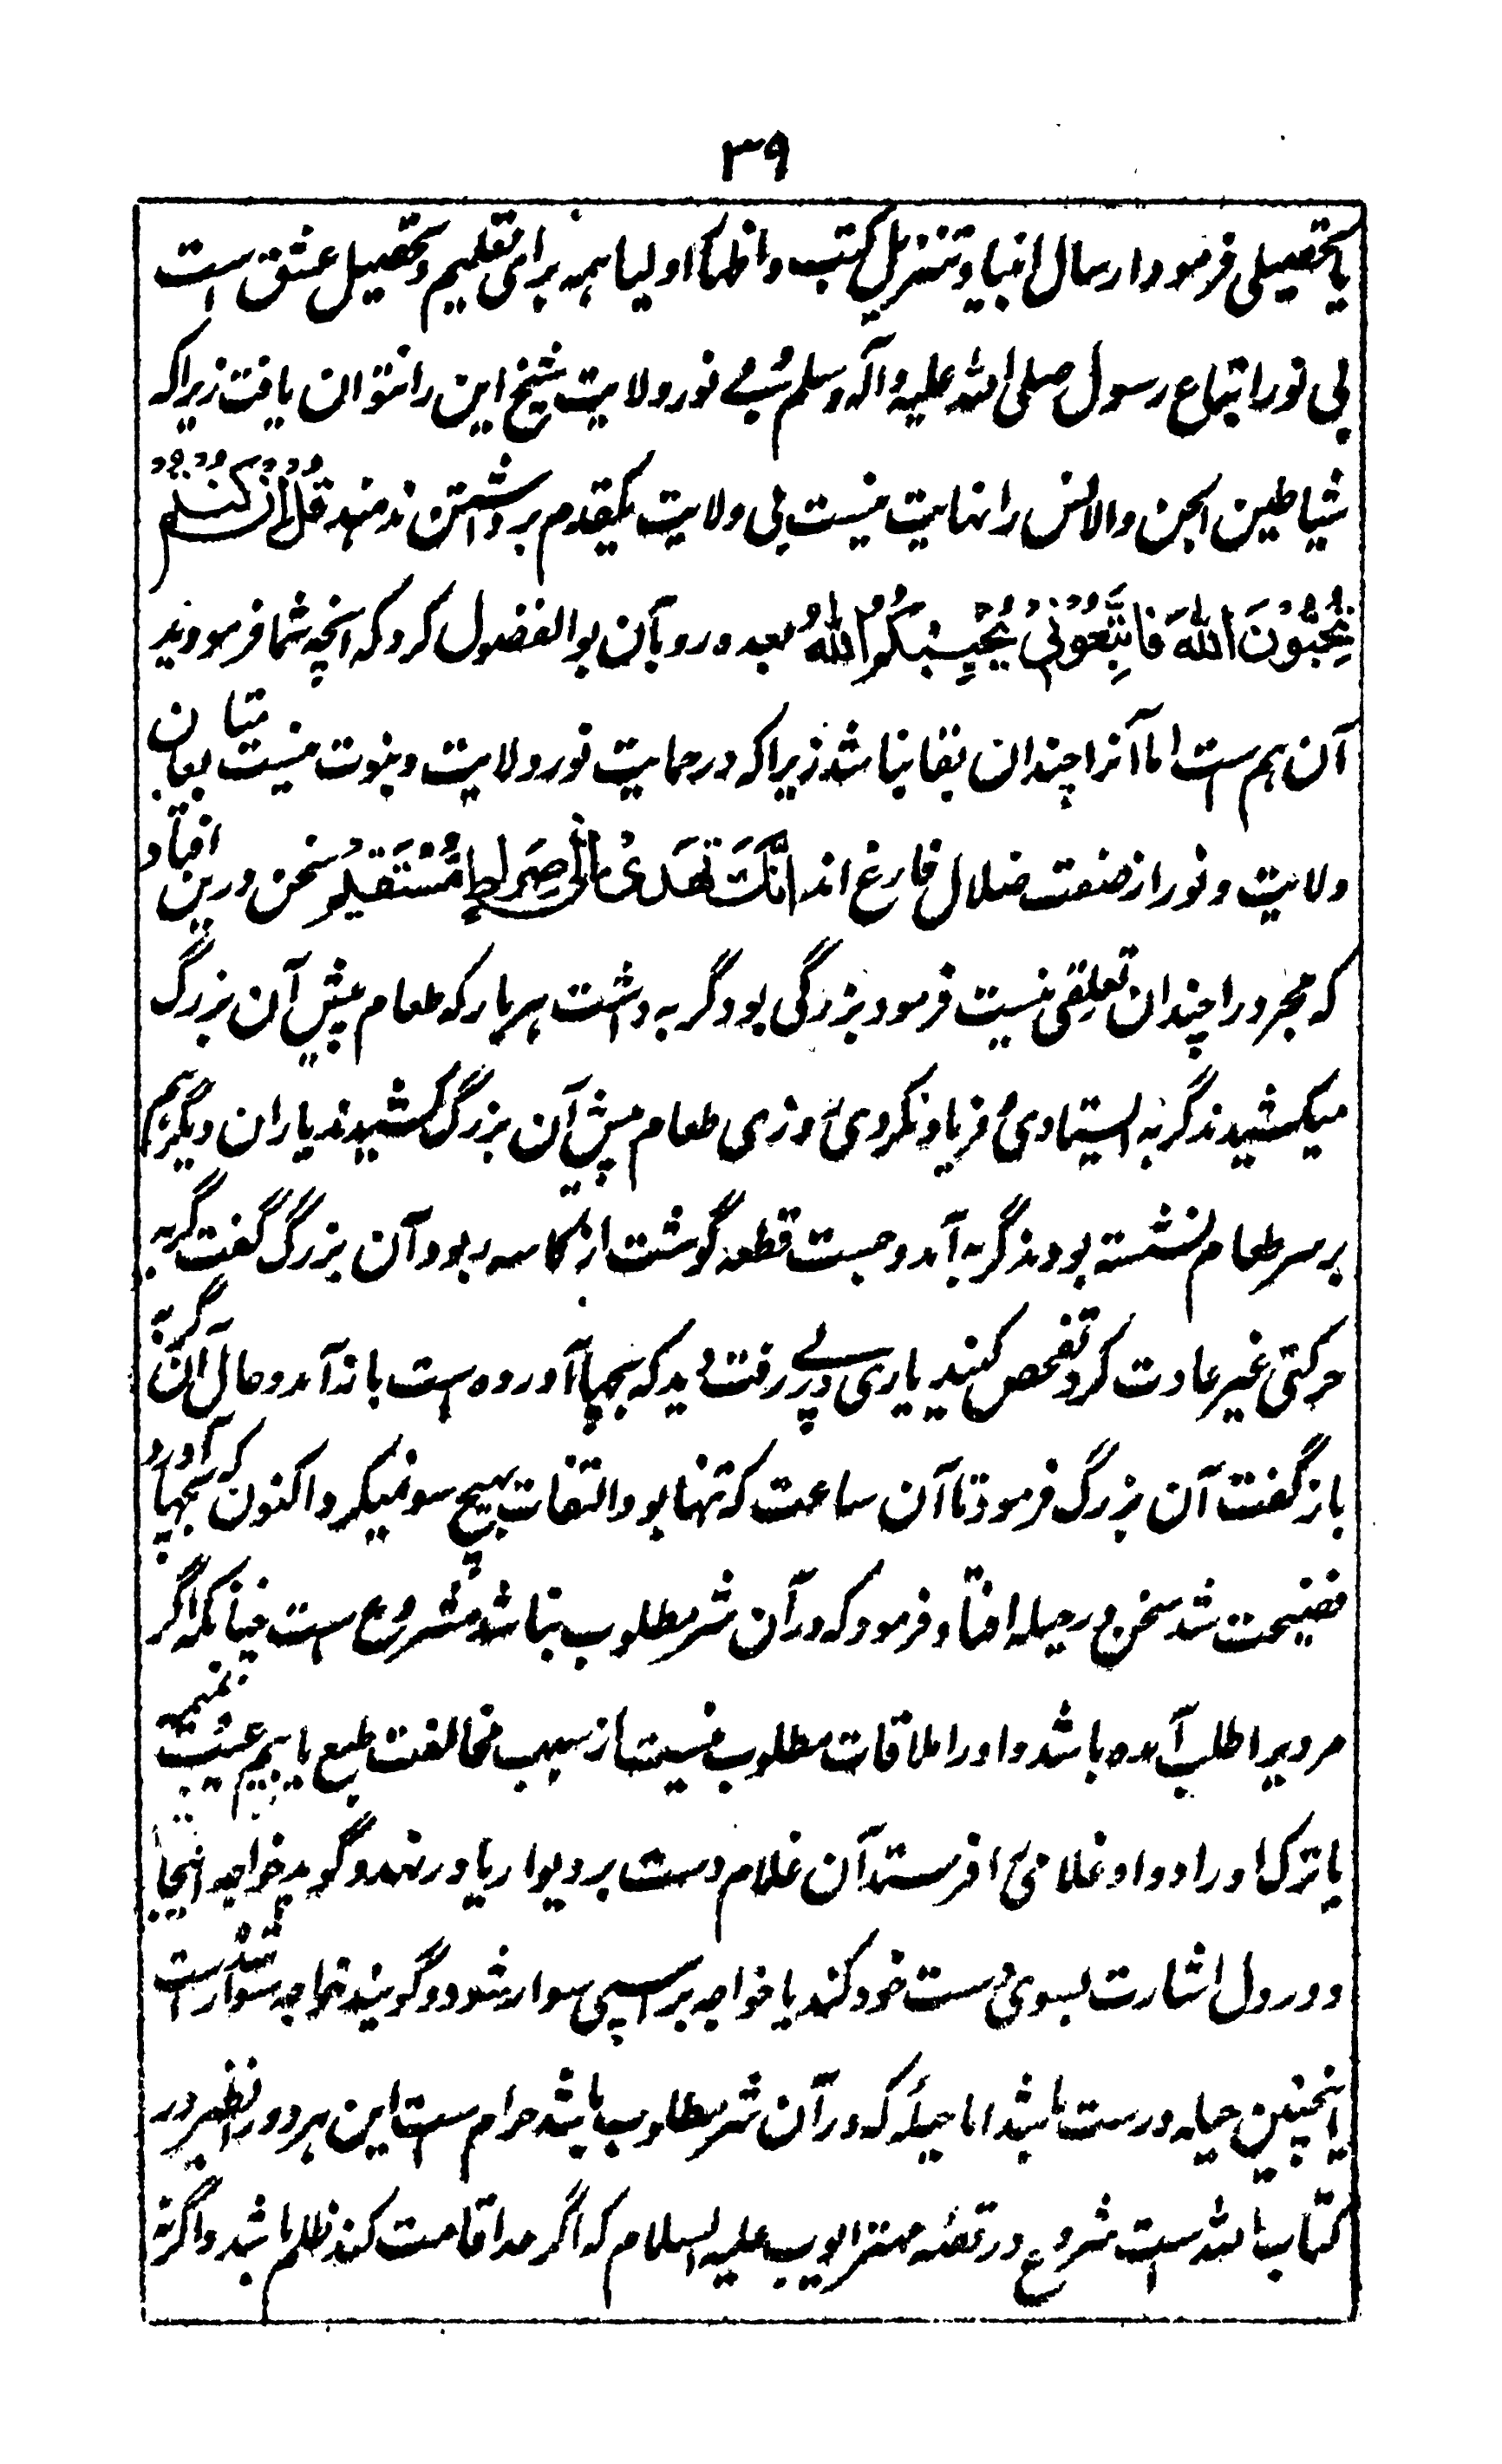 ۳۹
یا تحصیلی فرمود ارسال انبیا و تنزیل کتب و اظهار اولیا همه برای تعلیم و تحصیل عشق است
بی نور اتباع رسول صلی الله علیه و آله و سلم و بے نور ولایت شیخ این را نتوان یافت زیرا که
شیاطین الجن والانس را نهایت نیست بی ولایت یکقدم برداشتن ندهند قُلْ اِنْ كُنْتُمْ
تُحِبُّوْنَ اللّٰهَ فَاتَّبِعُوْنِیْ یُحْبِبْكُمُ اللّٰهُ بعده رو بآن بوالفضول کرد که انچه شما فرمودید
آن هم ست اما آنرا چندان بقا نباشد زیرا که در حمایت نور ولایت و نبوت نیست متابعان
ولایت و نور از صنعت ضلال فارغ اند اِنَّكَ تَهْدِیْ اِلٰی صِرَاطٍ مُّسْتَقِیْمٍ سخن درین افتاد
که مجرد را چندان تعلقی نیست فرمود بزرگی بود گربه داشت هر بار که طعام پیش آن بزرگ
میکشیدند گربه ایستادی و فریاد نکردی روزی طعام پیش آن بزرگ کشیدند یاران دیگر هم
بر سر طعام نشسته بودند گربه آمد و جست قطعه گوشت از کاسه بربود آن بزرگ گفت گربه
حرکتی غیر عادت کرد تفحص کنید یاری در پے رفت دید که بچها آورده است باز آمد و حال آن گربه
باز گفت آن بزرگ فرمود تا آن ساعت که تنها بود التفات بهیچ سو نمیکرد اکنون که بچها آورد
فضیحت شد سخن در حیله افتاد فرمود که در آن شر مطلوب نباشد مشروع ست چنانکه اگر
مردیرا طلب آمده باشد و او را ملاقات مطلوب نیست از سبب مخالفت طبع یا بیم غیبت
یا ترک اوراد و او غلامی را فرستد آن غلام دست بر دیوار یا در نهد و گوید خواجه اینجا نیست
و در دل اشارت بسوی دست خود کند یا خواجه بر اسپی سوار شود و گویند خواجه سوار شده است
اینچنین حیله درست باشد اما حیلهٔ که در آن شر مطلوب باشد حرام ست این هر دو را نظیر در
کتاب الله است مشروع در قصه مهتر ایوب علیه السلام که اگر حد اقامت کند ظلم باشد و اگر نه